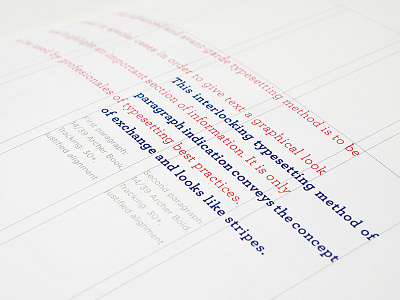 and avantgarde typesetting method is to be
special cases in order to give text a graphical look
highlight an important section of information. It is only
used by professionales of typesetting best practices.
This interlocking typesetting method of
paragraph indication conveys the concept
of exchange and looks like stripes.
First paragraph
14/39 Archer Book
Tracking 30+
Justified alignment
Second paragraph
14/39 Archer Bold
Tracking 30+
Justified alignment